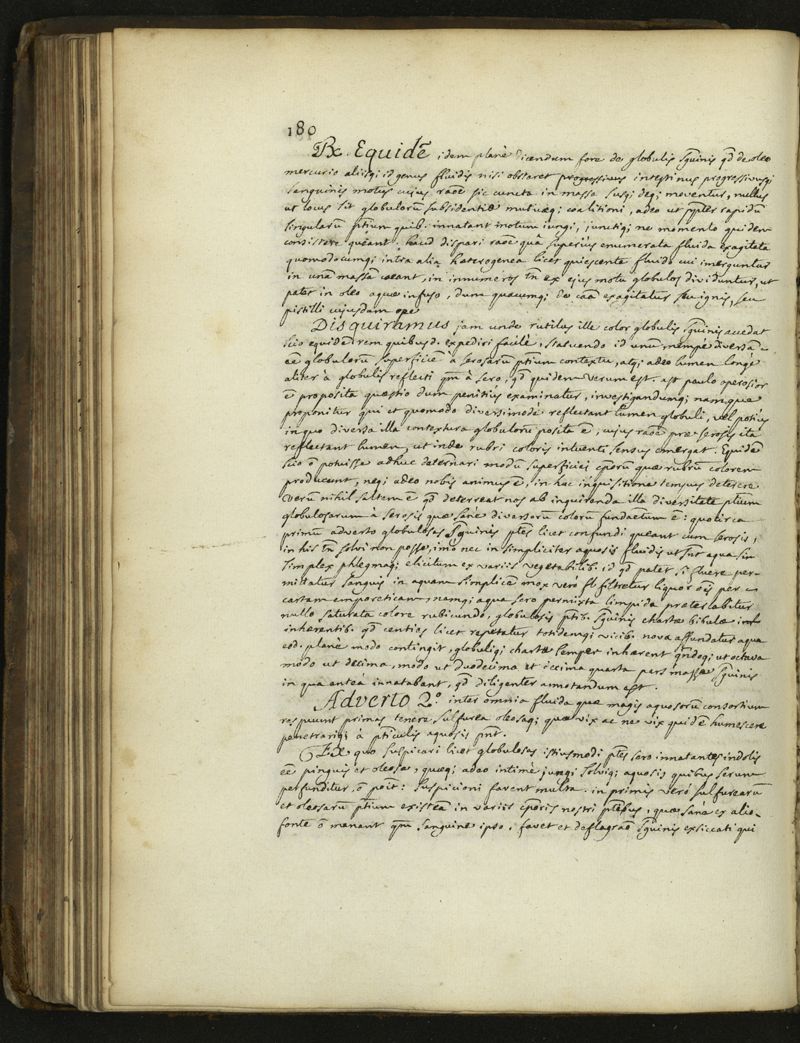 180
Rx. Equidē idem planè dicendum fore de globulis sg̃uinis qd de oleo
mercurio aliisq; id genus fluidis nisi obstaret progressivus intestinus progressivusq;
sanguinis motus cujus raōe sic cuncta in massa susq; deq; moventur, nullus
ut locus sit globulorū subsidentiæ mutuæq; coalitioni, adeo ut pp̃ter rapidū
singularū ptium quib. innatant motum jungi, junctiq; ne momento quidem
consistere queant. haud dispari raōe quâ superius enumerata fluida exagitata
quomodocumq; intra alia heterogenea licet quiescente fluido cui imerguntur
in unā massam coeant, in innumeros tñ ex ejus motu globulos dividuntur, ut
patet in oleo aquæ infuso, dum quacumq; de caā exagitatur sive ignis, seu
pistilli cujusdam ope
Disquiramus jam unde rutilus ille color globulis sg̃uinis accedat
scio equidē rem quibusd. expediri facilè, statuendo id unū, nempe diversā
eē globulorū superficiē à serosarū ptium contextu, atq; adeo lumen longè
aliter à globulis reflecti qm̃ à sero, qd quidem verum est. ast paulo operosior
ē proposita quæstio dum penitius examinatur, investigandumq; namque
proponitur qui et quomodo diversimodè reflectant lumen globuli, vel potius
in quo diversa illa contextura globulorū posita ē, cujus raōe præ serosis ita
reflectant lumen, ut inde rubri coloris intuenti sensus emergat. Equidē
scio ō potuisse adhuc determ̃ari modū superficiei cp̃orū quæ rubrū colorem
producunt, neq; adeo nobis animus ē, in hac inquisitione tempus deterere
verum nihil saltem ē qd deterreat nos ab inquirenda illa diversitate ptium
globulosarum à serosis quæ sane diversorū colorū fundaētum ē: quocirca
primū adverto globulosas sg̃uinis ptes licet confundi queant cum serosis,
in his tñ solvi non posse, imò nec in simpliciter aquosis fluidis ut sut aqua sim
simplex phlegmaq; elicitum ex variis vegetabilib. id qd patet si fluere per-
mittatur sanguis in aquam simplicē mox verò filtretur liquor oīs per
cartam emporeticam, namq; aqua sero permixta limpida præterlabitur
nullo saturata colore rubicundo, globulosis ptib. sg̃uinis chartæ bibulæ
inhærentib. qd centies licet repetatur totidemq; vicib. nova affundatur aqua
eod. planè modo contingit, globuliq; chartæ semper inhærent qn̄doq; ut octava
modo ut decima, modo ut duodecima et iccima quarta pars massæ sg̃uinis
in qua antea innatabant, qd diligenter annotandum est.
Adverto 2.° inter omnia fluida quæ magis aquosorū consortium
respuunt primas tenere sulfurea oleosaq; quæ vix ac ne vix quidē humescere
penetrariq; à pticulis aquosis pn̄t.
Ex quo suspicari licet globulosas istiusmodi ptes sero innatantes indolis
eē pinguis et oleosæ, quæq; adeo intimè jungi solviq; aquosis quibus serum
perfunditur, ō poēt: suspicioni favent multa. in primis verò sulfurearū
et oleosarū ptium existēa in variis cp̃oris nostri ptibus, quæ sanè ex alio
fonte ō manant qm̃ sanguine ipso, favet et deflagraō sg̃uinis exsiccati qui